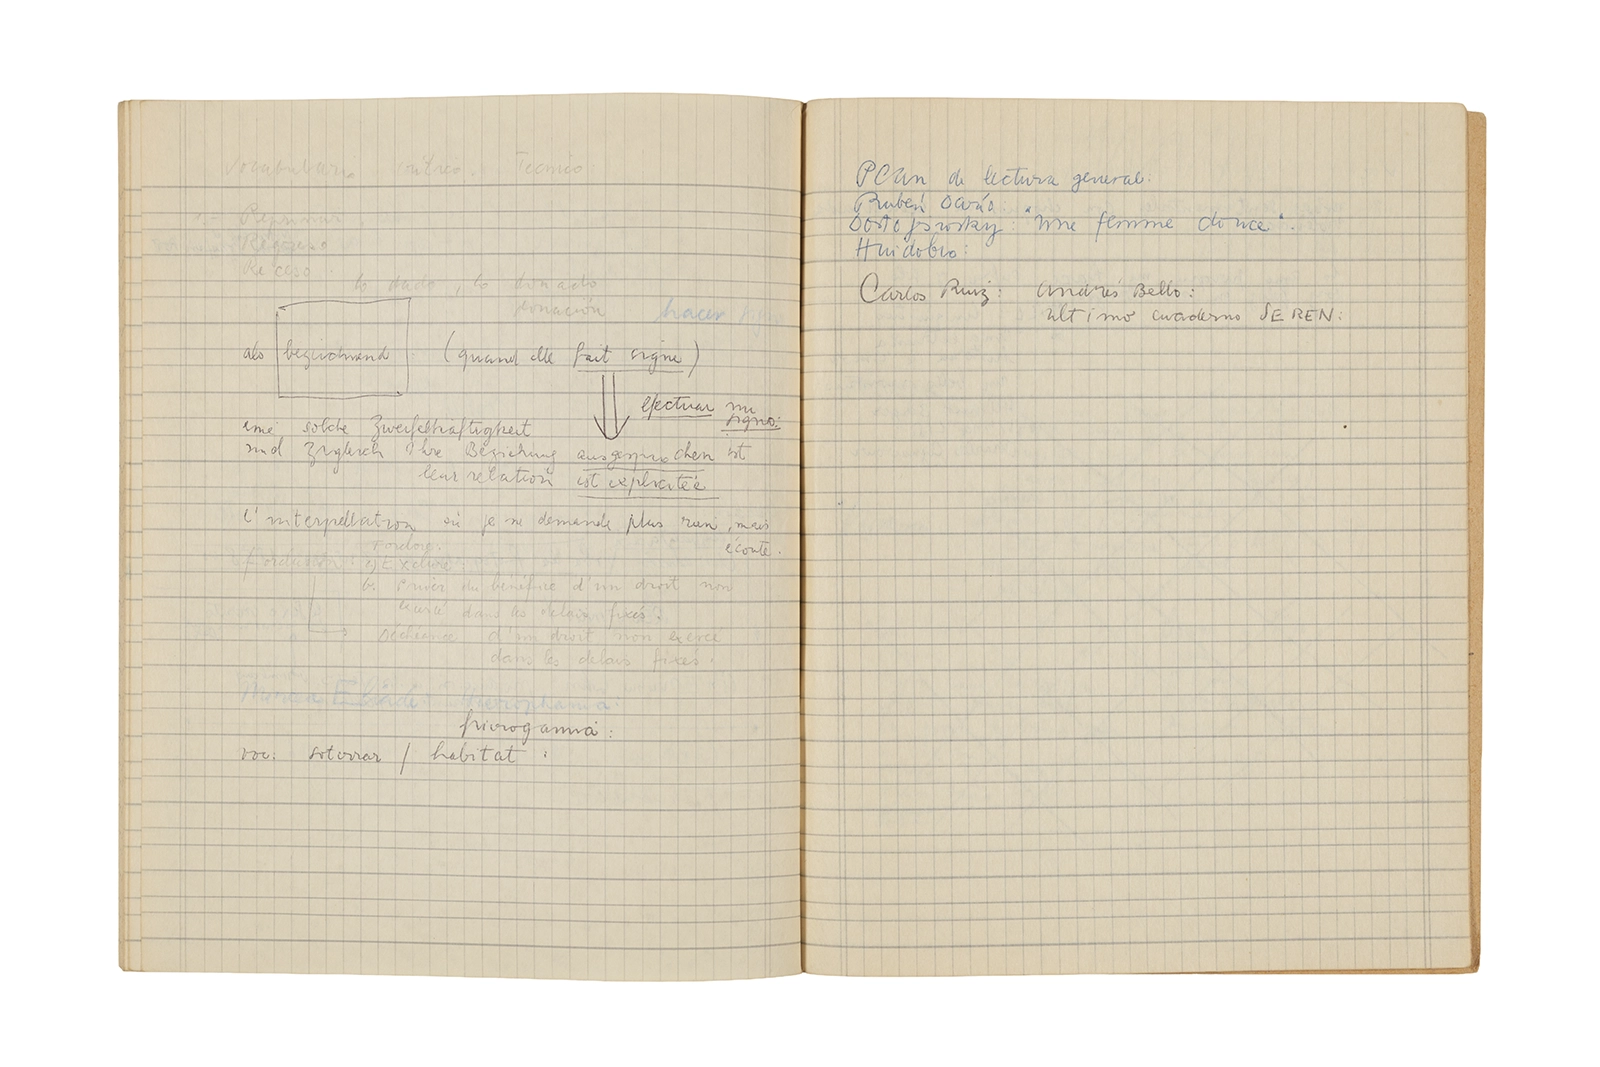 Vocabulario crítico. Tecnico
lo dado, lo donado
donación hacer
als bezeichnend : (quand elle fait signe)
efectuar un
signo:
eine solche Zweifelhaftigkeit
und Zugleich Ihre Beziehung ausgesprochen ist
leur relation est explicitée
L'interpellation où je ne demande plus rien, mais
écoute.
Forclore.
Forclusion: a) Exclure:
b. Priver du bénéfice d'un droit non
exercé dans les délais fixés.
Déchéance d'un droit non exercé
dans les délais fixés.
Mircea Eliade: Hierophania.
hierogamia:
voc: soterrar / habitat :
Plan de lectura general:
Rubén Darío.
Dostojewsky: "une femme douce".
Huidobro:
Carlos Ruiz: Andrés Bello:
último cuaderno SEREN: